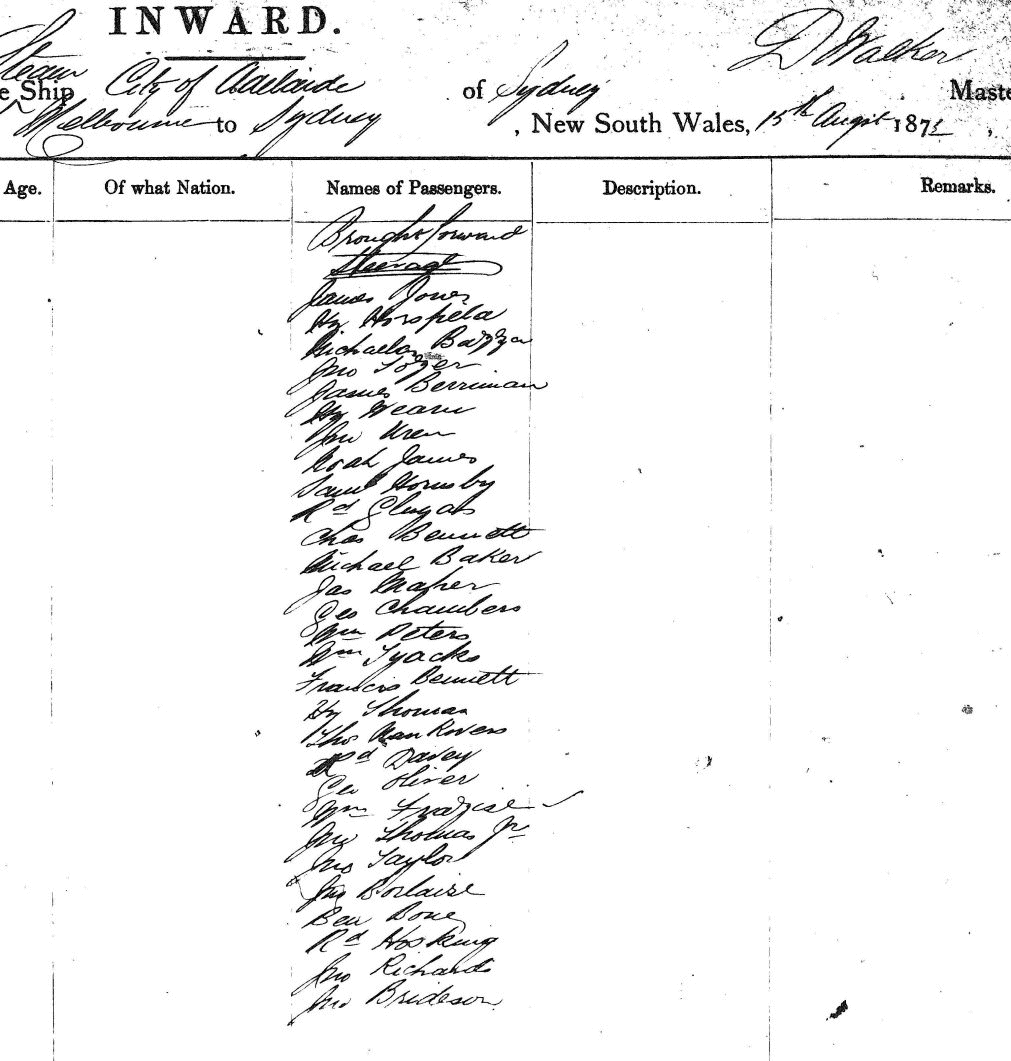 INWARD.
Steam
e Ship City of Adelaide of Sydney D Walker Maste
Melbourne to Sydney, New South Wales, 15th Augst 187
Age. Of what Nation. Names of Passengers. Description. Remarks.
Brought forward
Steerage
James Jones
Hy
Michael
Jno Tozer
James Berriman
Hy Wearn
Jno Uren
Noah James
Saml Hornsby
Rd
Chas Bennett
Michael Baker
Jas Maher
Geo Chambers
Wm Peters
Wm Tyacks
Francis Bennett
Hy Thomas
Thos
Rd Davey
Geo Oliver
Wm
Jno Thomas Jr
Jno Taylor
Jno Borlaise
Ben Bone
Rd Hosking
Jno Richards
Jno Brideson